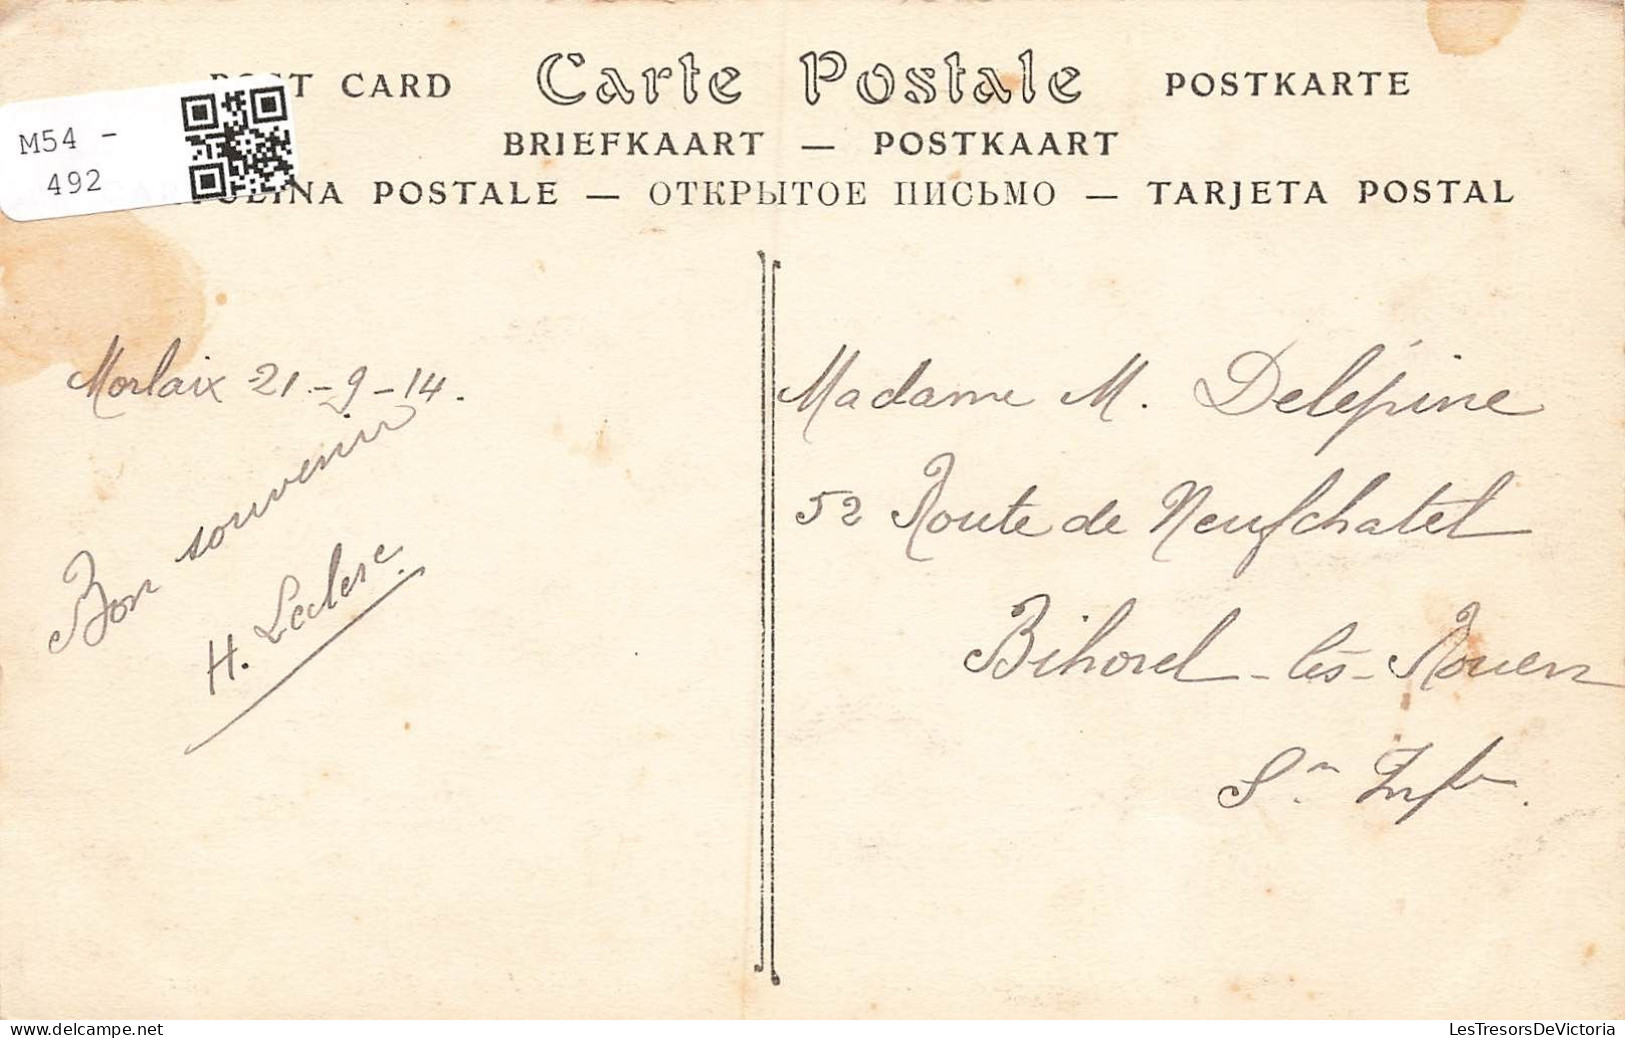 POST CARD Carte Postale POSTKARTE
BRIEFKAART — POSTKAART
CARTOLINA POSTALE — ОТКРЫТОЕ ПИСЬМО — TARJETA POSTAL
M54 -
492
Morlaix 21-9-14.
Bon souvenir
H. Leclerc.
Madame M. Delépine
52 Route de Neufchatel
Bihorel-lès-Rouen
Sne Infre.
delcampe.net
LesTresorsDeVictoria